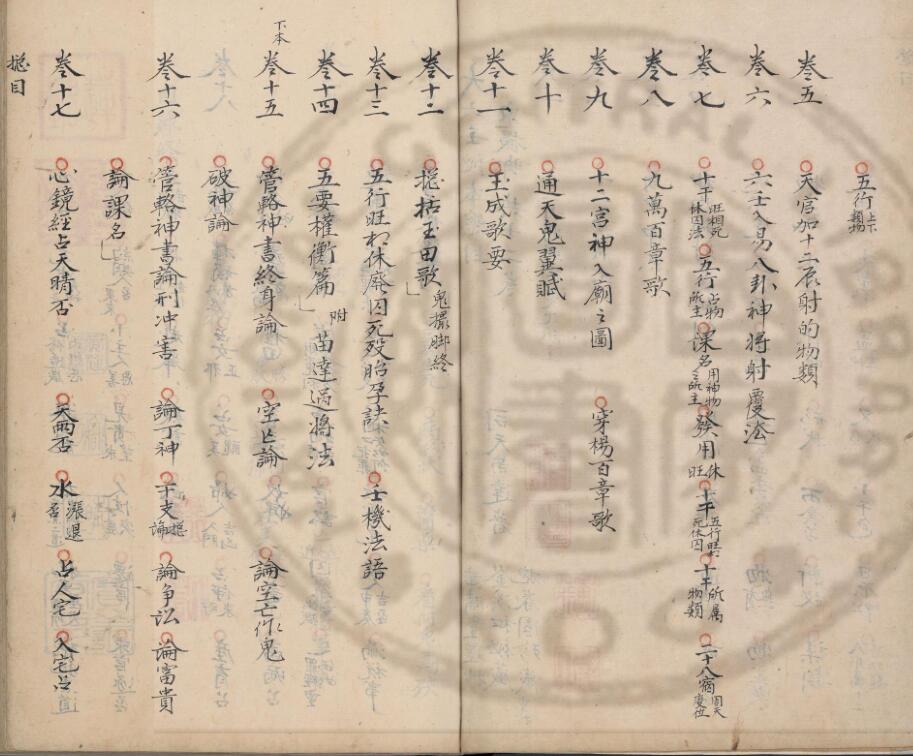 五行上下類物
卷五 天官加十二辰射的物類
卷六 六壬入易八卦神將射覆法
卷七 十干旺相死休囚法 五行占物所主 課名用神物之所主 發用休旺 十干五行旺死休囚 十干所属物類 二十八宿周天度位
卷八 九萬百章歌
卷九 十二宮神入廟之圖 穿楊百章歌
卷十 通天鬼翼賦
卷十一 玉成歌要
卷十二 捴括玉田歌 鬼撮脚終
卷十三 五行旺相休廢囚死歿胎孕訣 士機法語
卷十四 五要權衡篇 附 苗達過將法
下本
卷十五 管輅神書終身論 空亡論 論空亡作鬼
破神論
卷十六 管輅神書論刑冲害 論丁神 干支捴論 論爭訟 論富貴
論課名
卷十七 心鏡經占天晴否 天雨否 水漲退否 占人宅 入宅占
捴目